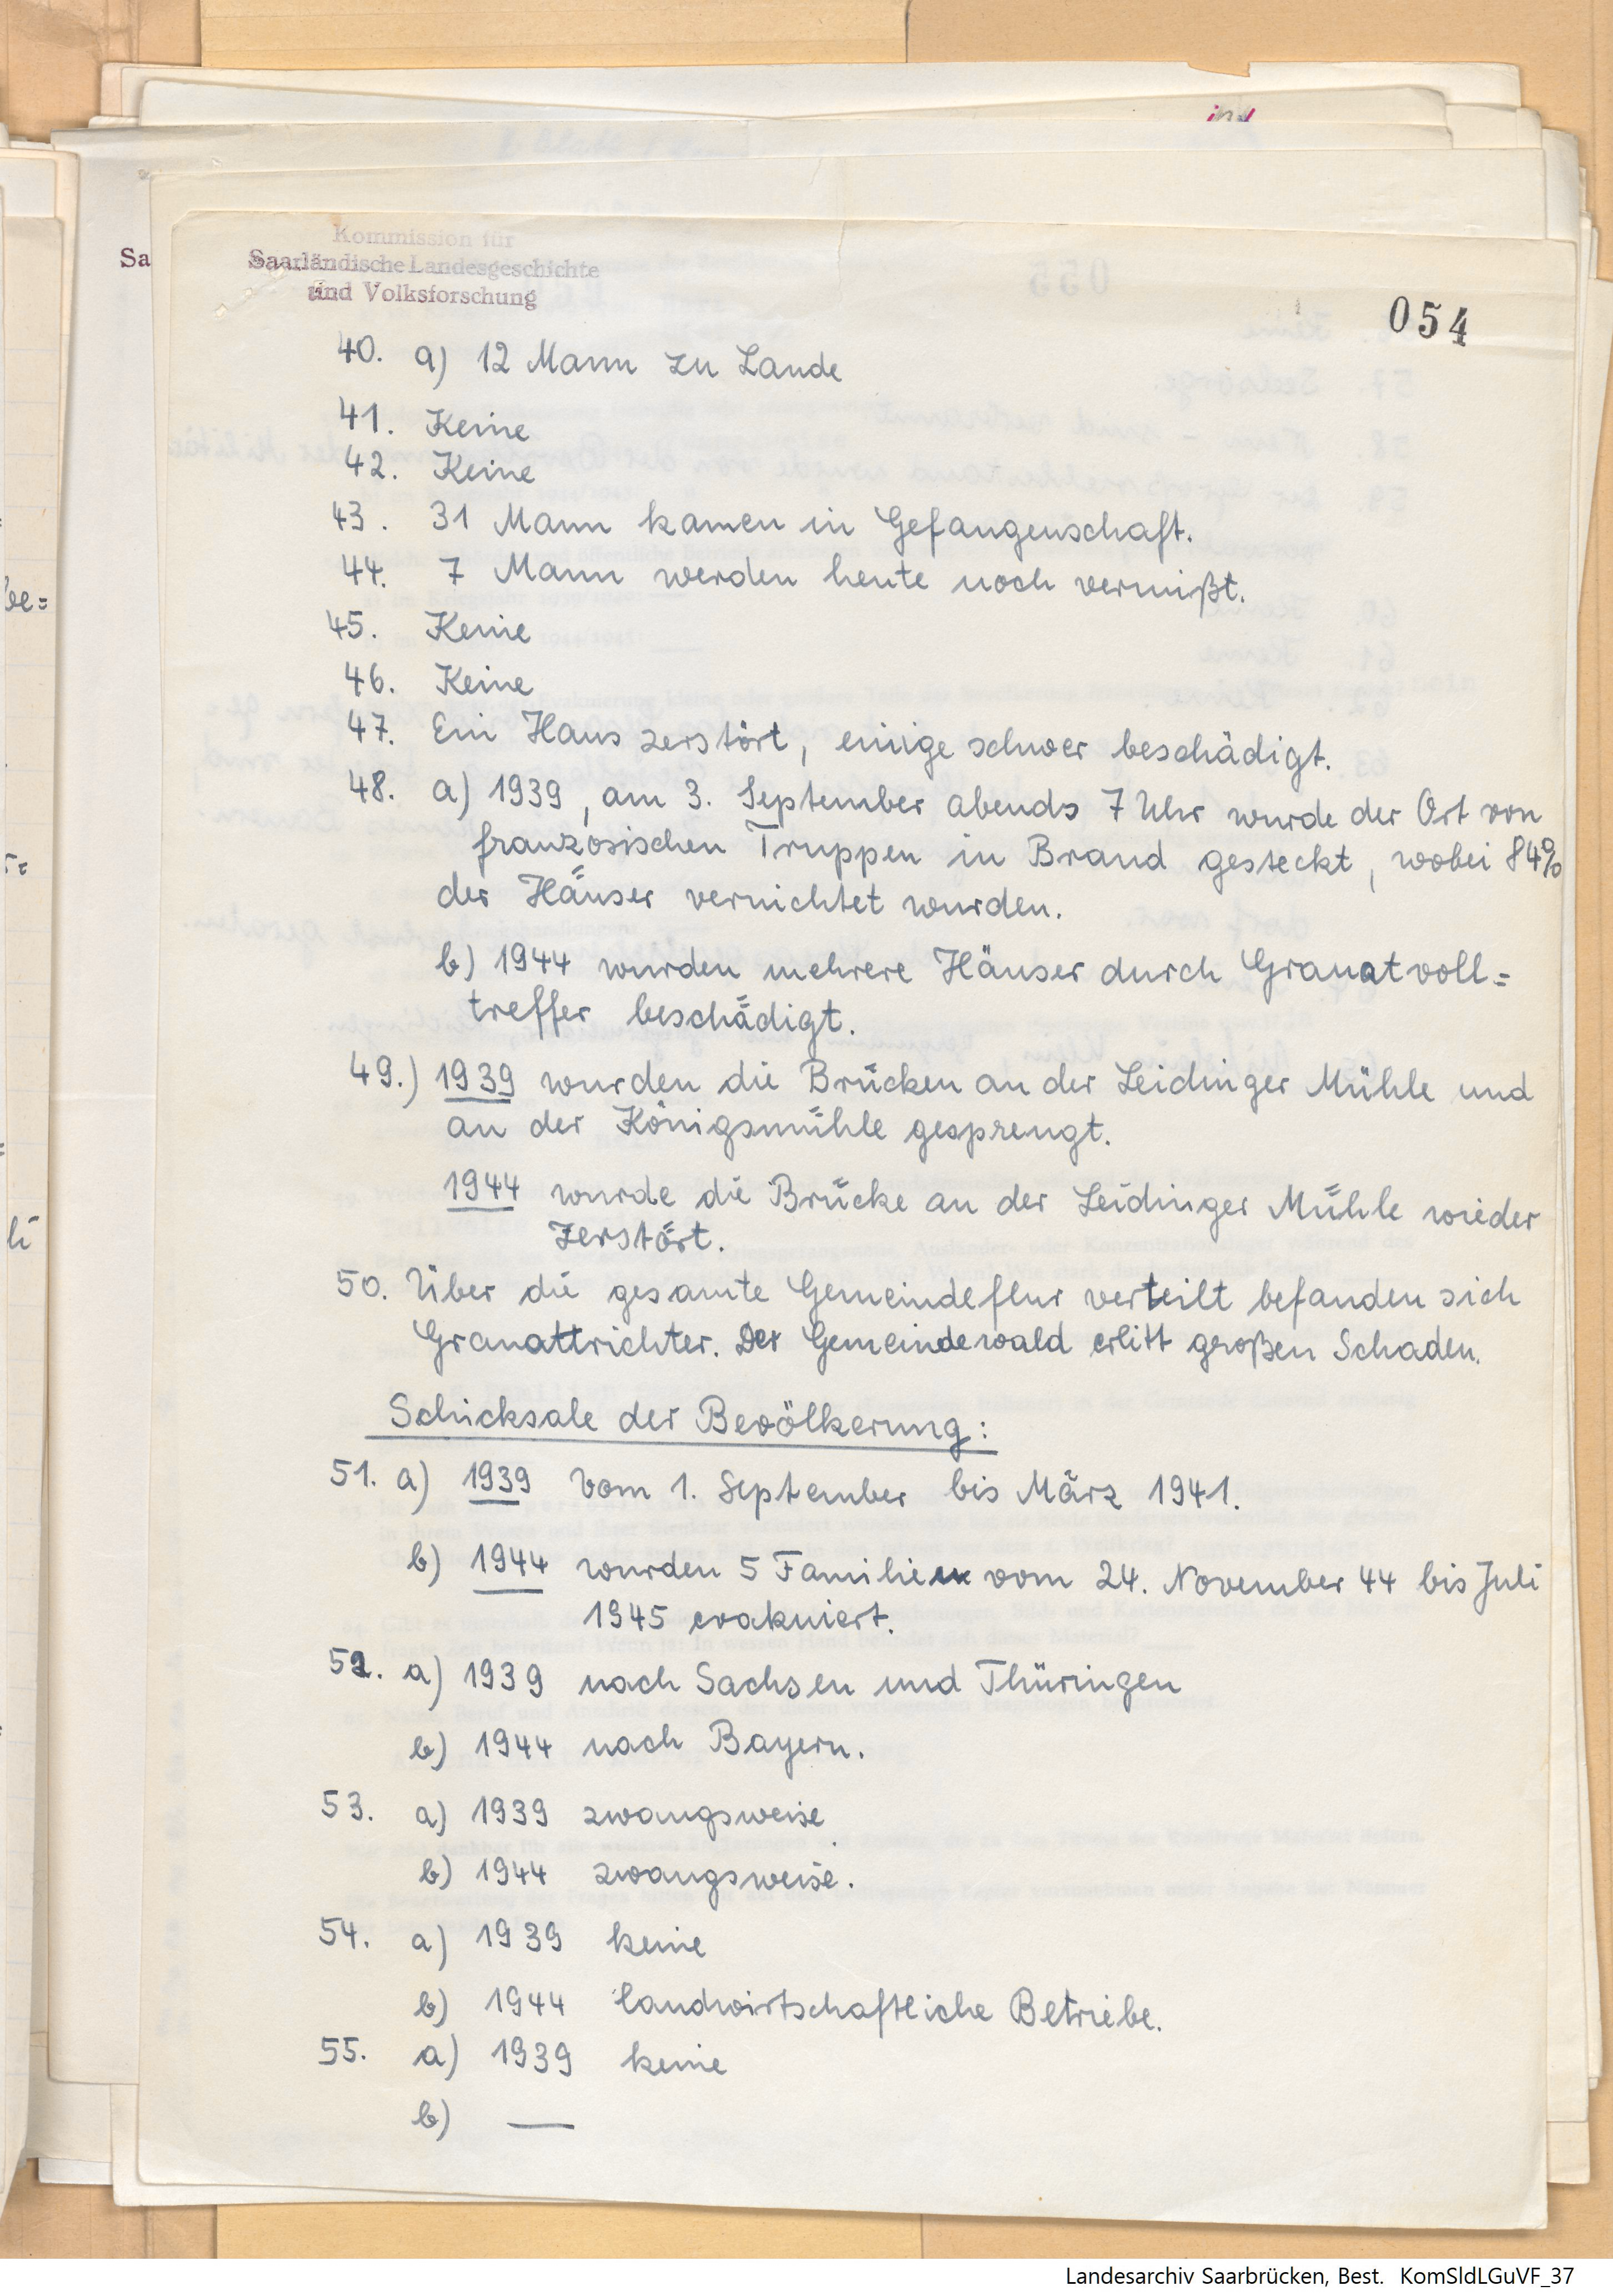 Kommission für
Saarländische Landesgeschichte
und Volksforschung
Sa
054
40. a) 12 Mann zu Lande
41. Keine
42. Keine
43. 31 Mann kamen in Gefangenschaft.
44. 7 Mann werden heute noch vermißt.
45. Keine
46. Keine
47. Ein Haus zerstört, einige schwer beschädigt.
48. a) 1939, am 3. September abends 7 Uhr wurde der Ort von
französischen Truppen in Brand gesteckt, wobei 84%
der Häuser vernichtet wurden.
b) 1944 wurden mehrere Häuser durch Granatvoll=
treffer beschädigt.
49.) 1939 wurden die Brücken an der Leidinger Mühle und
an der Königsmühle gesprengt.
1944 wurde die Brücke an der Leidinger Mühle wieder
zerstört.
50. Über die gesamte Gemeindeflur verteilt befanden sich
Granattrichter. Der Gemeindewald erlitt großen Schaden.
Schicksale der Bevölkerung:
51. a) 1939 vom 1. September bis März 1941.
b) 1944 wurden 5 Familien vom 24. November 44 bis Juli
1945 evakuiert.
52. a) 1939 nach Sachsen und Thüringen
b) 1944 nach Bayern.
53. a) 1939 zwangsweise
b) 1944 zwangsweise.
54. a) 1939 keine
b) 1944 landwirtschaftliche Betriebe.
55. a) 1939 keine
b) —
Landesarchiv Saarbrücken, Best. KomSldLGuVF_37